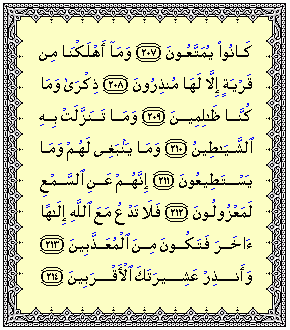 كَانُوا۟ يُمَتَّعُونَ ﴿٢٠٧﴾ وَمَآ أَهْلَكْنَا مِن
قَرْيَةٍ إِلَّا لَهَا مُنذِرُونَ ﴿٢٠٨﴾ ذِكْرَىٰ وَمَا
كُنَّا ظَٰلِمِينَ ﴿٢٠٩﴾ وَمَا تَنَزَّلَتْ بِهِ
ٱلشَّيَٰطِينُ ﴿٢١٠﴾ وَمَا يَنۢبَغِى لَهُمْ وَمَا
يَسْتَطِيعُونَ ﴿٢١١﴾ إِنَّهُمْ عَنِ ٱلسَّمْعِ
لَمَعْزُولُونَ ﴿٢١٢﴾ فَلَا تَدْعُ مَعَ ٱللَّهِ إِلَٰهًا
ءَاخَرَ فَتَكُونَ مِنَ ٱلْمُعَذَّبِينَ ﴿٢١٣﴾
وَأَنذِرْ عَشِيرَتَكَ ٱلْأَقْرَبِينَ ﴿٢١٤﴾